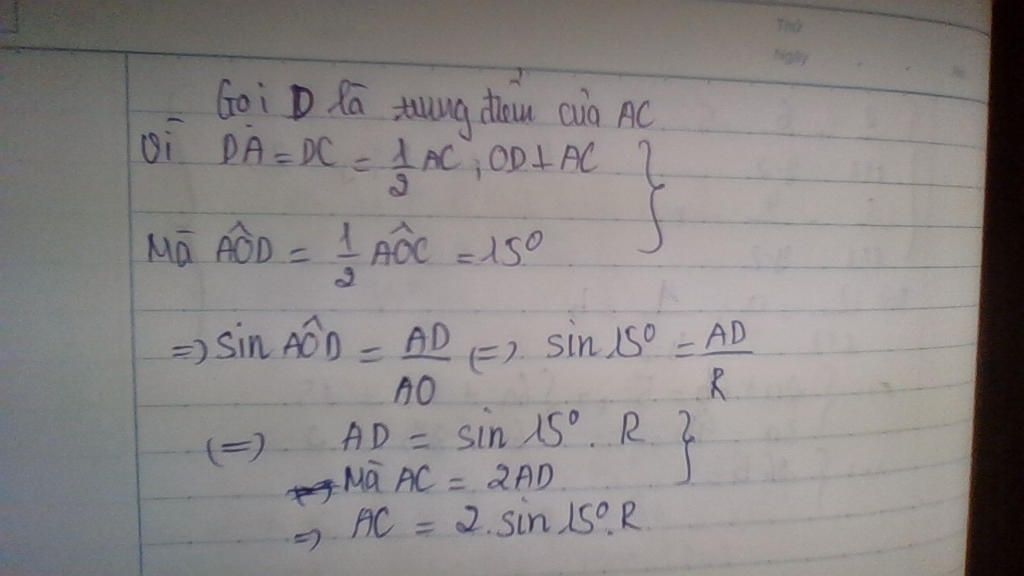 Thứ
Ngày
Gọi D là trung điểm của AC
Vì DA = DC = 1/2 AC ; OD ⊥ AC }
Mà AÔD = 1/2 AÔC = 15°
=> sin AÔD = AD/AO (=) sin 15° = AD/R
(=) AD = sin 15° . R }
Mà AC = 2AD
=> AC = 2. sin 15°. R